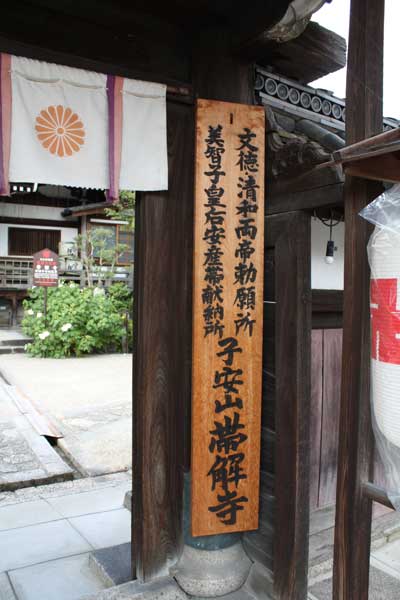 文徳・清和両帝勅願所
美智子皇后安産帯献納所
子安山帯解寺